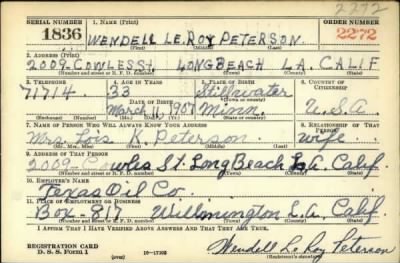 2272
SERIAL NUMBER 1. NAME (Print) ORDER NUMBER
1836 WENDELL LE.ROY PETERSON. 2272
(First) (Middle) (Last)
2. ADDRESS (Print)
2009-COWLES St. LONG BEACH L.A. CALIF
(Number and street or R. F. D. number) (Town) (County) (State)
3. TELEPHONE 4. AGE IN YEARS 5. PLACE OF BIRTH 6. COUNTRY OF CITIZENSHIP
71714 33 Stillwater
DATE OF BIRTH (Town or county)
March 11, 1907 Minn. U.S.A.
(Exchange) (Number) (Mo.) (Day) (Yr.) (State or country)
7. NAME OF PERSON WHO WILL ALWAYS KNOW YOUR ADDRESS 8. RELATIONSHIP OF THAT PERSON
Mrs. Lois Peterson wife.
(Mr., Mrs., Miss) (First) (Middle) (Last)
9. ADDRESS OF THAT PERSON
2009-Cowles St. Long Beach L.A. Calif.
(Number and street or R. F. D. number) (Town) (County) (State)
10. EMPLOYER'S NAME
Texas Oil Co.
11. PLACE OF EMPLOYMENT OR BUSINESS
Box-817 Wilmington L.A. Calif.
(Number and street or R. F. D. number) (Town) (County) (State)
I AFFIRM THAT I HAVE VERIFIED ABOVE ANSWERS AND THAT THEY ARE TRUE.
REGISTRATION CARD
D. S. S. Form 1 (over) 16-17105 Wendell Le Roy Peterson
(Registrant's signature)